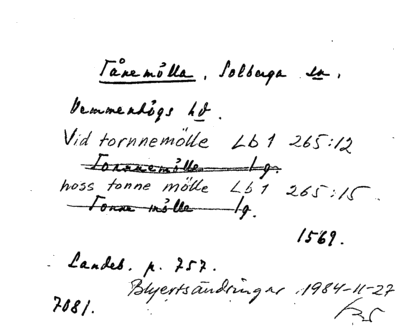 Tånemölla, Solberga sn.
Vemmenhögs hd.
Vid tornnemölle Lb 1 265:12
Tornnemölle lg.
hoss tonne mölle Lb 1 265:15
Tonne mölle lg.
1569.
Landeb. p. 757.
Blyertsändringar 1984-11-27
7081.